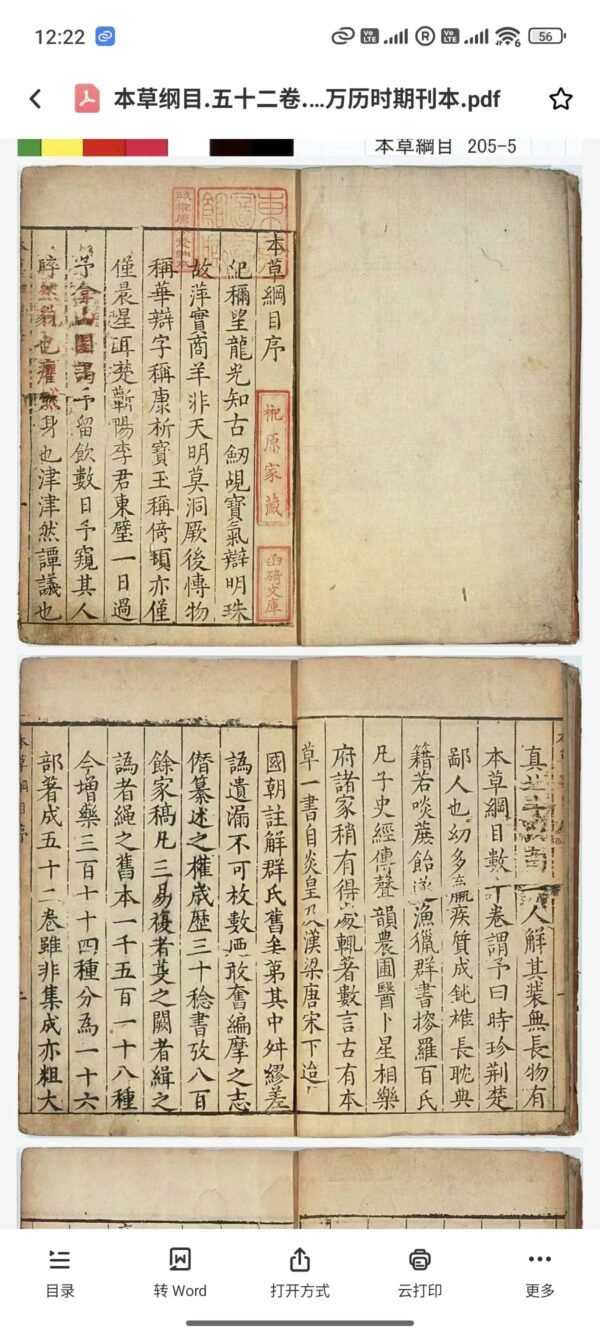 12:22
Vo LTE
R
Vo LTE
6
56
本草纲目.五十二卷....万历时期刊本.pdf
本草綱目 205-5
杷原家藏
函碕文庫
本草綱目序
紀稱望龍光知古劒覘寶氣辯明珠
故萍實商羊非天明莫洞厥後慱物
稱華辯字稱康析寶玉稱倚頓亦僅
僅晨星耳楚蘄陽李君東璧一日過
予弇山園謁予留飲數日予窺其人
睟然貌也癯然身也津津然譚議也
真 人解其裝無長物有
本草綱目數十卷謂予曰時珍荆楚
鄙人也幼多羸疾質成鈍椎長耽典
籍若啖蔗飴遂漁獵群書搜羅百氏
凡子史經傳聲韻農圃醫卜星相樂
府諸家稍有得處輒著數言古有本
草一書自炎皇及漢梁唐宋下迨
國朝註解群氏舊矣第其中舛繆差
譌遺漏不可枚數廼敢奮編摩之志
僭纂述之權歲歷三十稔書攷八百
餘家稿凡三易複者芟之闕者緝之
譌者繩之舊本一千五百一十八種
今增藥三百七十四種分為一十六
部著成五十二卷雖非集成亦粗大
目录
转 Word
打开方式
云打印
更多